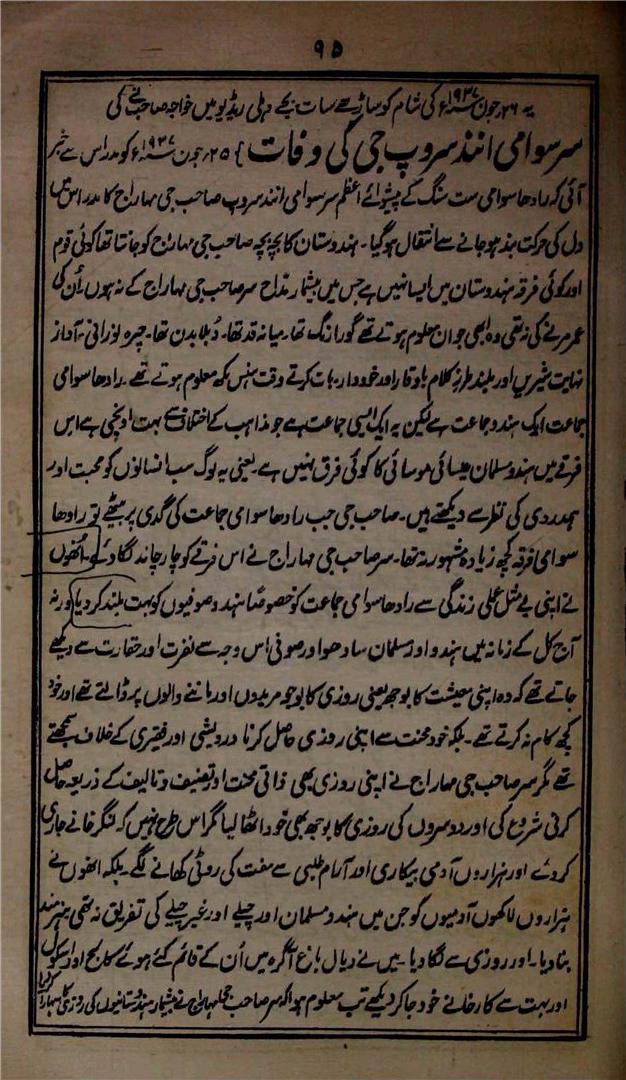 ۹۵
یہ ۲۶ جون ۱۹۳۷ء کی شام کو ساڑھے سات بجے دہلی ریڈیو میں خواجہ صاحب نے کی
سرسوامی انند سروپ جی کی وفات } ۲۵ جون ۱۹۳۷ء کو مدراس سے خبر
آئی کہ رادھا سوامی ست سنگ کے پیشوائے اعظم سرسوامی انند سروپ صاحب جی مہاراج کا مدراس میں
دل کی حرکت بند ہوجانے سے انتقال ہوگیا۔ ہندوستان کا بچہ بچہ صاحب جی مہاراج کو جانتا تھا کوئی قوم
اور کوئی فرقہ ہندوستان میں ایسا نہیں ہے جس میں بیشمار مداح سر صاحب جی مہاراج کے نہ ہوں اُن کی
عمر مرنے کی نہ تھی وہ ابھی جوان معلوم ہوتے تھے گورا رنگ تھا۔ میانہ قد تھا۔ دُبلا بدن تھا۔ چہرہ نورانی۔ آواز
نہایت شیریں اور بلند طرز کلام باوقار اور خوددار۔ بات کرتے وقت ہنس مکھ معلوم ہوتے تھے۔ رادھا سوامی
جماعت ایک ہندو جماعت ہے لیکن یہ ایک ایسی جماعت ہے جو مذاہب کے اختلاف سے بہت اونچی ہے اس
فرقے میں ہندو مسلمان عیسائی موسائی کا کوئی فرق نہیں ہے۔ یعنی یہ لوگ سب انسانوں کو محبت اور
ہمدردی کی نظر سے دیکھتے ہیں۔ صاحب جی جب رادھا سوامی جماعت کی گدی پر بیٹھے تو رادھا
سوامی فرقہ کچھ زیادہ مشہور نہ تھا۔ سر صاحب جی مہاراج نے اس فرقے کو چار چاند لگا دئے۔ انھوں
نے اپنی بے مثل عملی زندگی سے رادھا سوامی جماعت کو خصوصًا ہندو صوفیوں کو بہت بلند کر دیا ورنہ
آج کل کے زمانہ میں ہندو اور مسلمان سادھو اور صوفی اس وجہ سے نفرت اور حقارت سے دیکھے
جاتے تھے کہ وہ اپنی معیشت کا بوجھ یعنی روزی کا بوجھ مریدوں اور ماننے والوں پر ڈالتے تھے اور خود
کچھ کام نہ کرتے تھے۔ بلکہ خود محنت سے اپنی روزی حاصل کرنا درویشی اور فقیری کے خلاف سمجھتے
تھے مگر سر صاحب جی مہاراج نے اپنی روزی بھی ذاتی محنت اور تصنیف و تالیف کے ذریعہ حاصل
کرنی شروع کی اور دوسروں کی روزی کا بوجھ بھی خود اٹھا لیا مگر اس طرح نہیں کہ لنگر خانے جاری
کر دئے اور ہزاروں آدمی بیکاری اور آرام طلبی سے مفت کی روٹی کھانے لگے۔ بلکہ انھوں نے
ہزاروں لاکھوں آدمیوں کو جن میں ہندو مسلمان اور چیلے اور غیر چیلے کی تفریق نہ تھی ہنرمند
بنا دیا۔ اور روزی سے لگا دیا۔ میں نے دیال باغ آگرہ میں اُن کے قائم کئے ہوئے کالج اور اسکول
اور بہت سے کارخانے خود جاکر دیکھے تب معلوم ہوا کہ سر صاحب جی مہاراج نے بیشمار ہندوستانیوں کی روزی کا سہارا